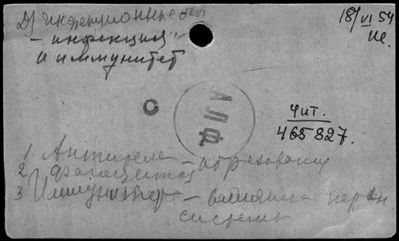 Д) инфекционные б-ни
18/VI 54
- инфекция
и иммунитет
АЛФ
Чит.
465827.
1. Антитела - образование
2. фагоцитоз
3 Иммунитет - влияние нервн
системы